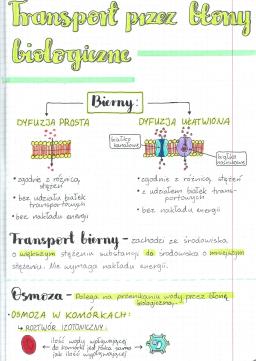 Transport przez błony
biologiczne
Bierny:
DYFUZJA PROSTA
DYFUZJA UŁATWIONA
białko
kanałowe
białko
nośnikowe
• zgodnie z różnicą
stężeń
• bez udziału białek
transportowych
• bez nakładu energii
• zgodnie z różnicą stężeń
• z udziałem białek trans-
portowych
• bez nakładu energii
Transport bierny - zachodzi ze środowiska
o większym stężeniu substancji do środowiska o mniejszym
stężeniu. Nie wymaga nakładu energii.
Osmoza - Polega na przenikaniu wody przez błonę
biologiczną.
• OSMOZA W KOMÓRKACH:
↳ ROZTWÓR IZOTONICZNY:
ilość wody wpływającej
do komórki jest taka sama
jak ilość wypływającej